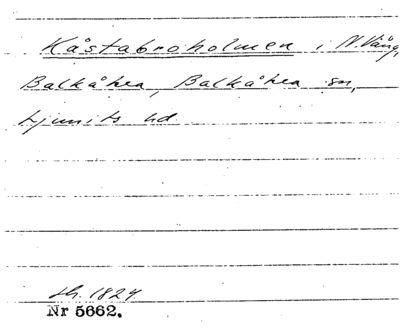 Kåstabroholmen i N. Väng,
Balkåkra, Balkåkra sn,
Ljunits hd
sk. 1824.
Nr 5662.